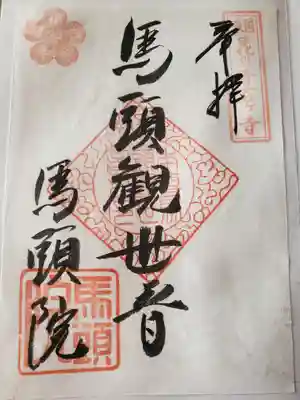 奉拝
馬頭観世音
馬頭院
馬頭